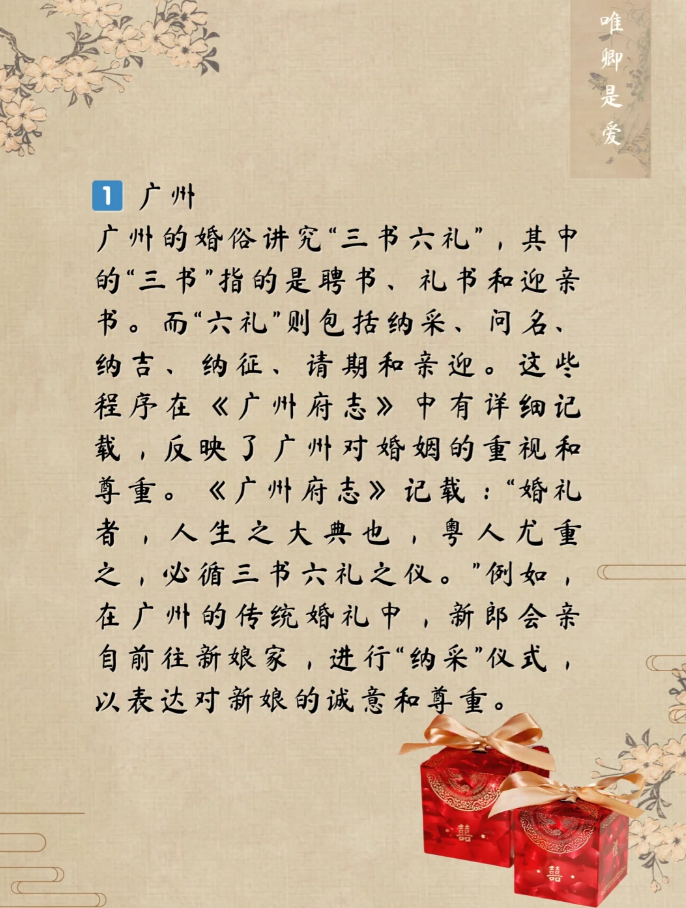 唯卿是爱
1 广州
广州的婚俗讲究“三书六礼”，其中
的“三书”指的是聘书、礼书和迎亲
书。而“六礼”则包括纳采、问名、
纳吉、纳征、请期和亲迎。这些
程序在《广州府志》中有详细记
载，反映了广州对婚姻的重视和
尊重。《广州府志》记载：“婚礼
者，人生之大典也，粤人尤重
之，必循三书六礼之仪。”例如，
在广州的传统婚礼中，新郎会亲
自前往新娘家，进行“纳采”仪式，
以表达对新娘的诚意和尊重。
囍
囍